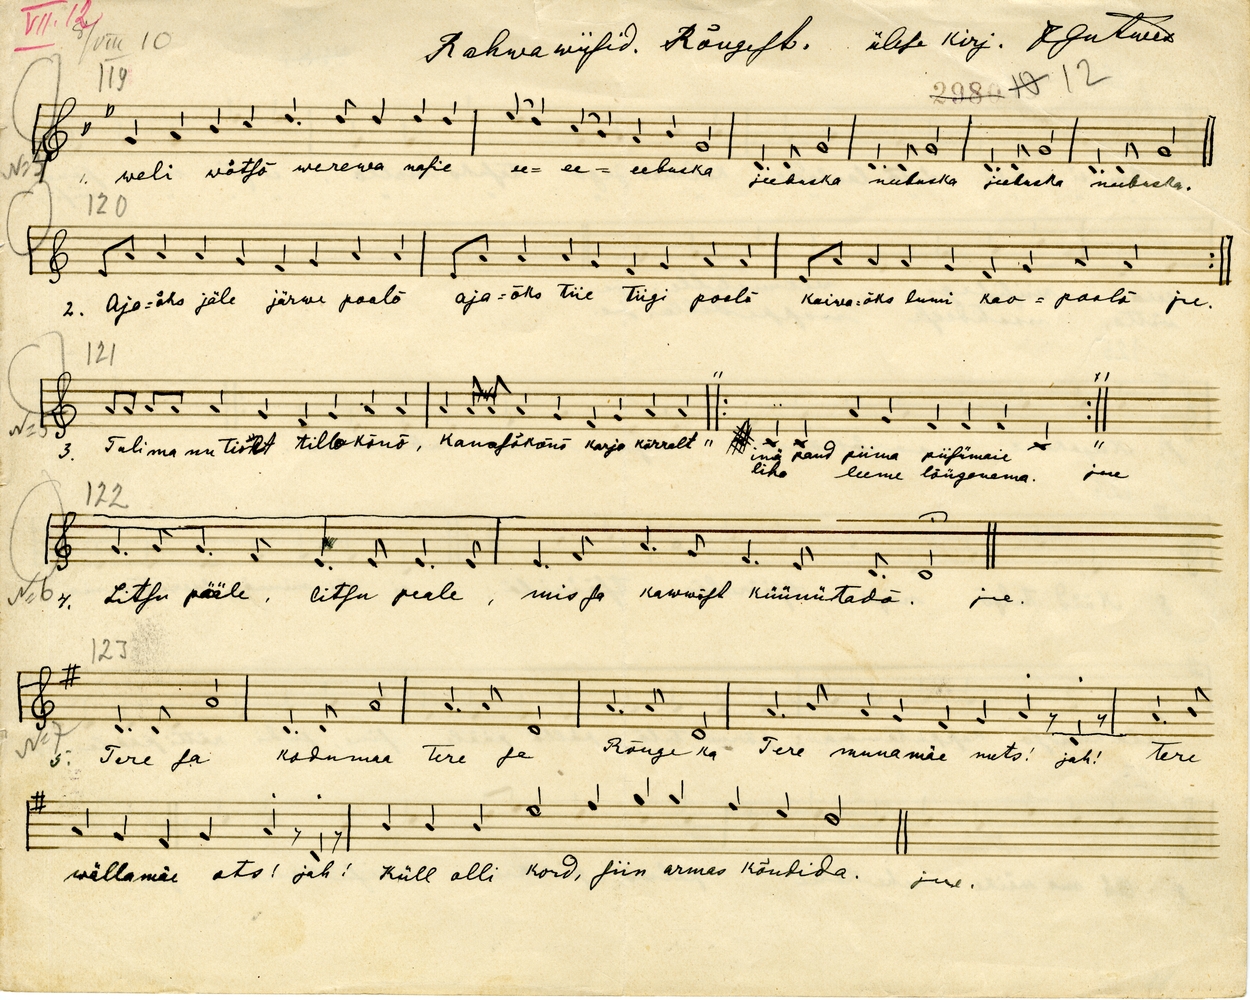 VII. 12
3/VIII 10
Rahwawiisid. Rõugest. ülese kirj.
2980 10 12
119
1. weli wõtsõ werewa nasie ee= ee = eebuska jeebuska neebuska jeebuska neebuska.
120
2. Aja=õks jäle järwe poolõ aja=õks tiie tiigi poolõ kaiwa=õks lumi kao = poolõ jne.
121
N=5
3. Tuli ma nu tillokõnõ, kanasõkõnõ karja körralt " inä pand piima piisimaie "
liha leeme lõugenema. jne
122
N=6
4. Litsu pääle, litsu peale, mis sa kawwõst küünütadõ. jne.
123
N=7
5. Tere sa kodumaa tere sa Rõuge ka Tere munamäe nuts! jah! tere
wällamäe ots! jah! Küll olli kord, siin armas kõndida. jne.